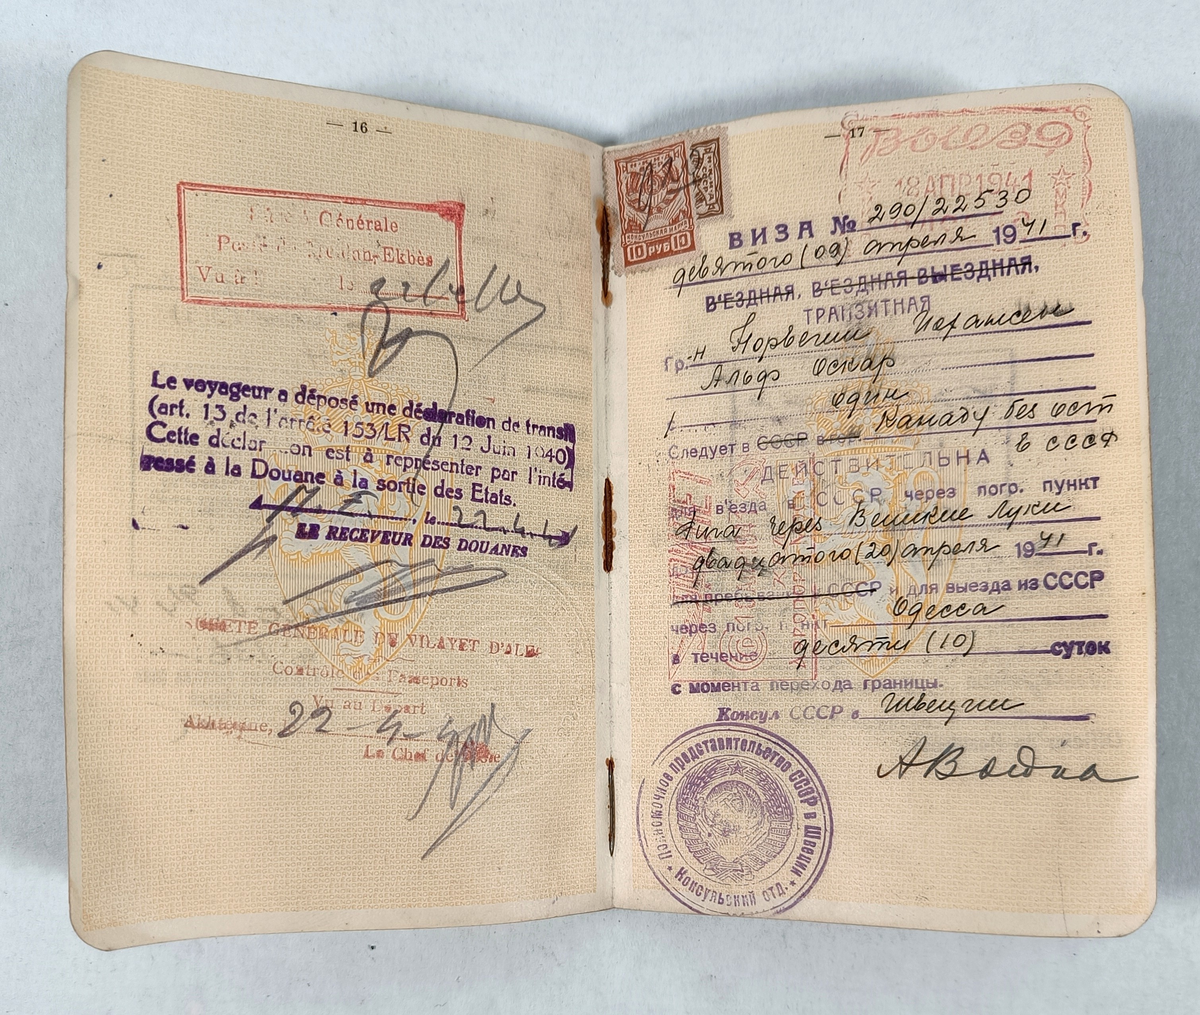 — 16 —
Générale
Vu à
Le voyageur a déposé une déclaration de transit
(art. 13 de l'arrêté 153/LR du 12 Juin 1940)
Cette déclar...on est à représenter par l'inté-
ressé à la Douane à la sortie des Etats.
, le 22.4.41
LE RECEVEUR DES DOUANES
SURETE GENERALE DU VILAYET D'ALEP
Contrôle des Passeports
Vu au Départ
22-4-41
Le Chef de Poste
— 17 —
ВЫЕЗД
18 АПР 1941
КОНСУЛЬСКАЯ МАРКА
10 РУБ 10
ВИЗА № 290/22530
девятого (09) апреля 1941 г.
ВЪЕЗДНАЯ, ВЪЕЗДНАЯ ВЫЕЗДНАЯ,
ТРАНЗИТНАЯ
Гр.-н Норвегии
Альф Оскар
один
Следует в СССР в гор. Канаду без ост
в СССР
ДЕЙСТВИТЕЛЬНА
для в'езда в СССР через погр. пункт
Рига через Великие Луки
двадцатого (20) апреля 1941 г.
для пребывания в СССР и для выезда из СССР
через погр. пункт Одесса
в течение десяти (10) суток
с момента перехода границы.
Консул СССР в Швеции
Полномочное представительство СССР в Швеции
* Консульский отд. *